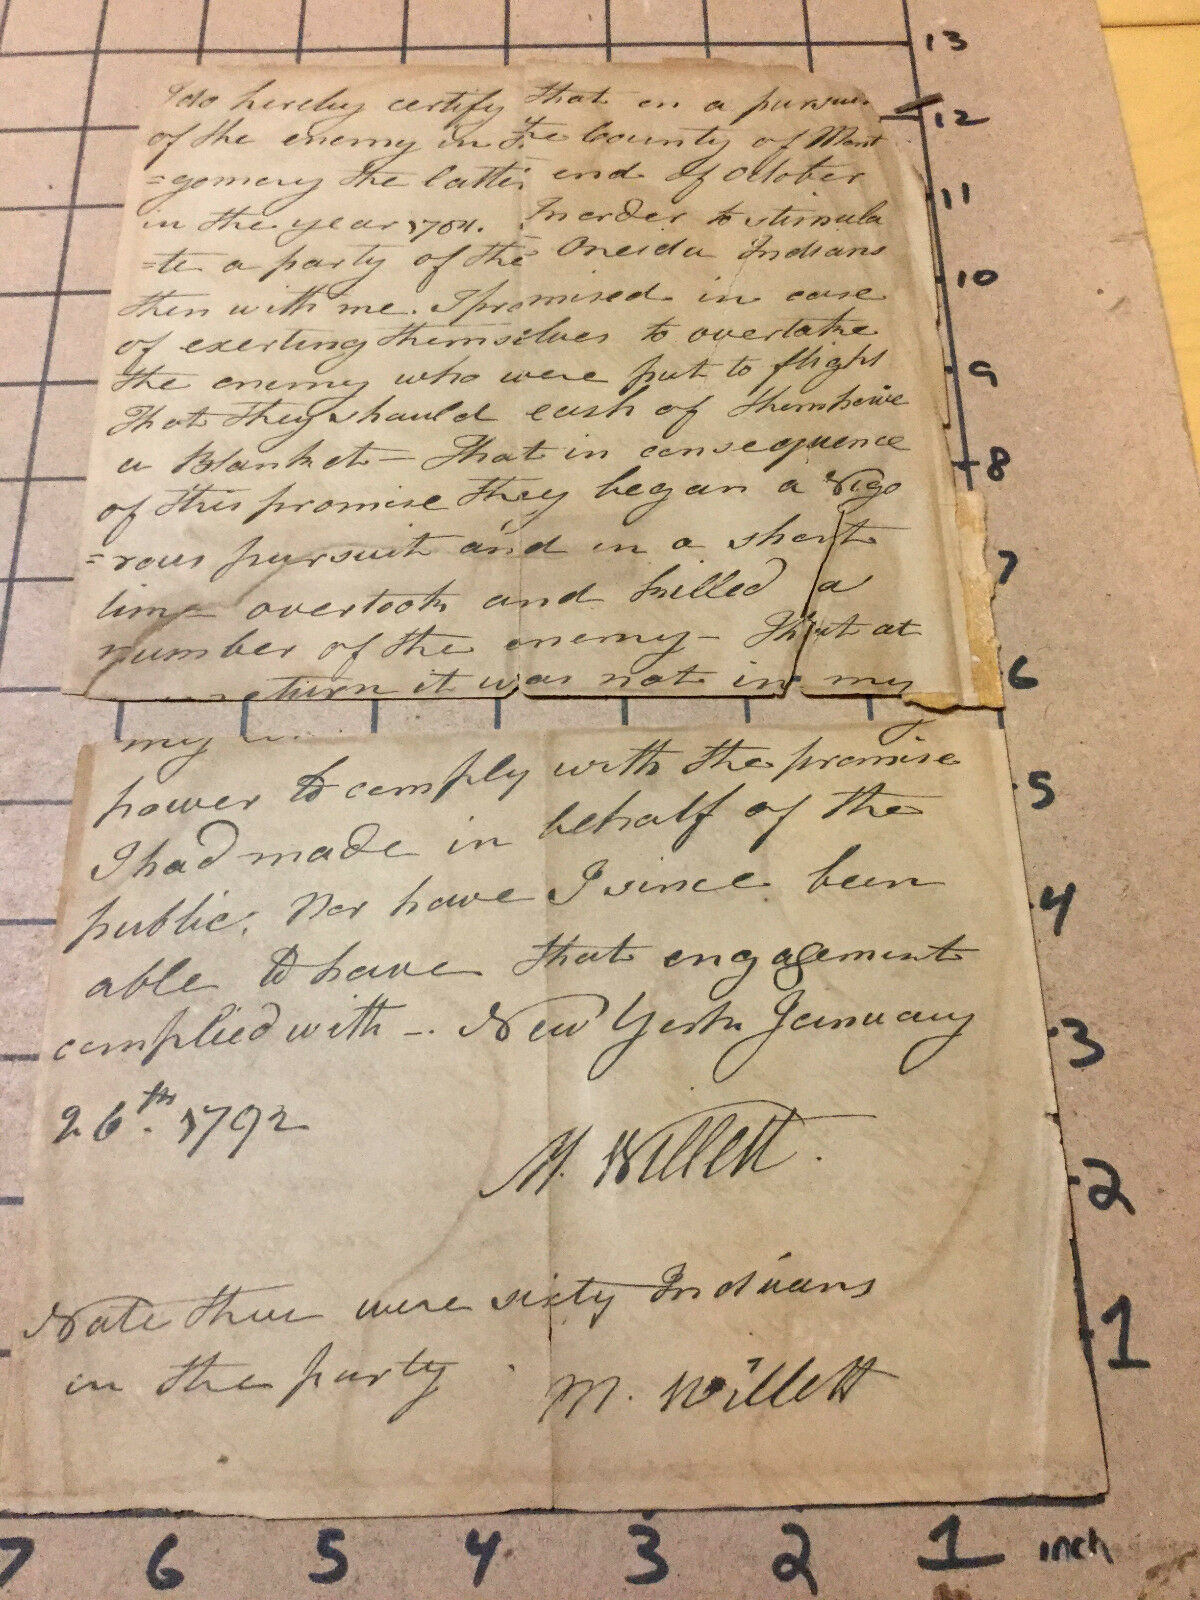 I do hereby certify that on a pursui
of the enemy in the County of Mont
=gomery the latter end of October
in the year 1781. In order to stimula
=te a party of the Oneida Indians
then with me. I promised in case
of exerting themselves to overtake
the enemy who were put to flight
That they should each of them have
a Blanket – That in consequence
of this promise they began a Vigo
=rous pursuit and in a short
time overtook and killed a
number of the enemy – That at
return it was not in my
my
power to comply with the promise
I had made in behalf of the
public. Nor have I since been
able to have that engagement
complied with –. New York January
26th. 1792
M. Willett.
Note there were sixty Indians
in the party
M. Willett
13
12
11
10
9
8
7
6
5
4
3
2
1
7 6 5 4 3 2 1 inch